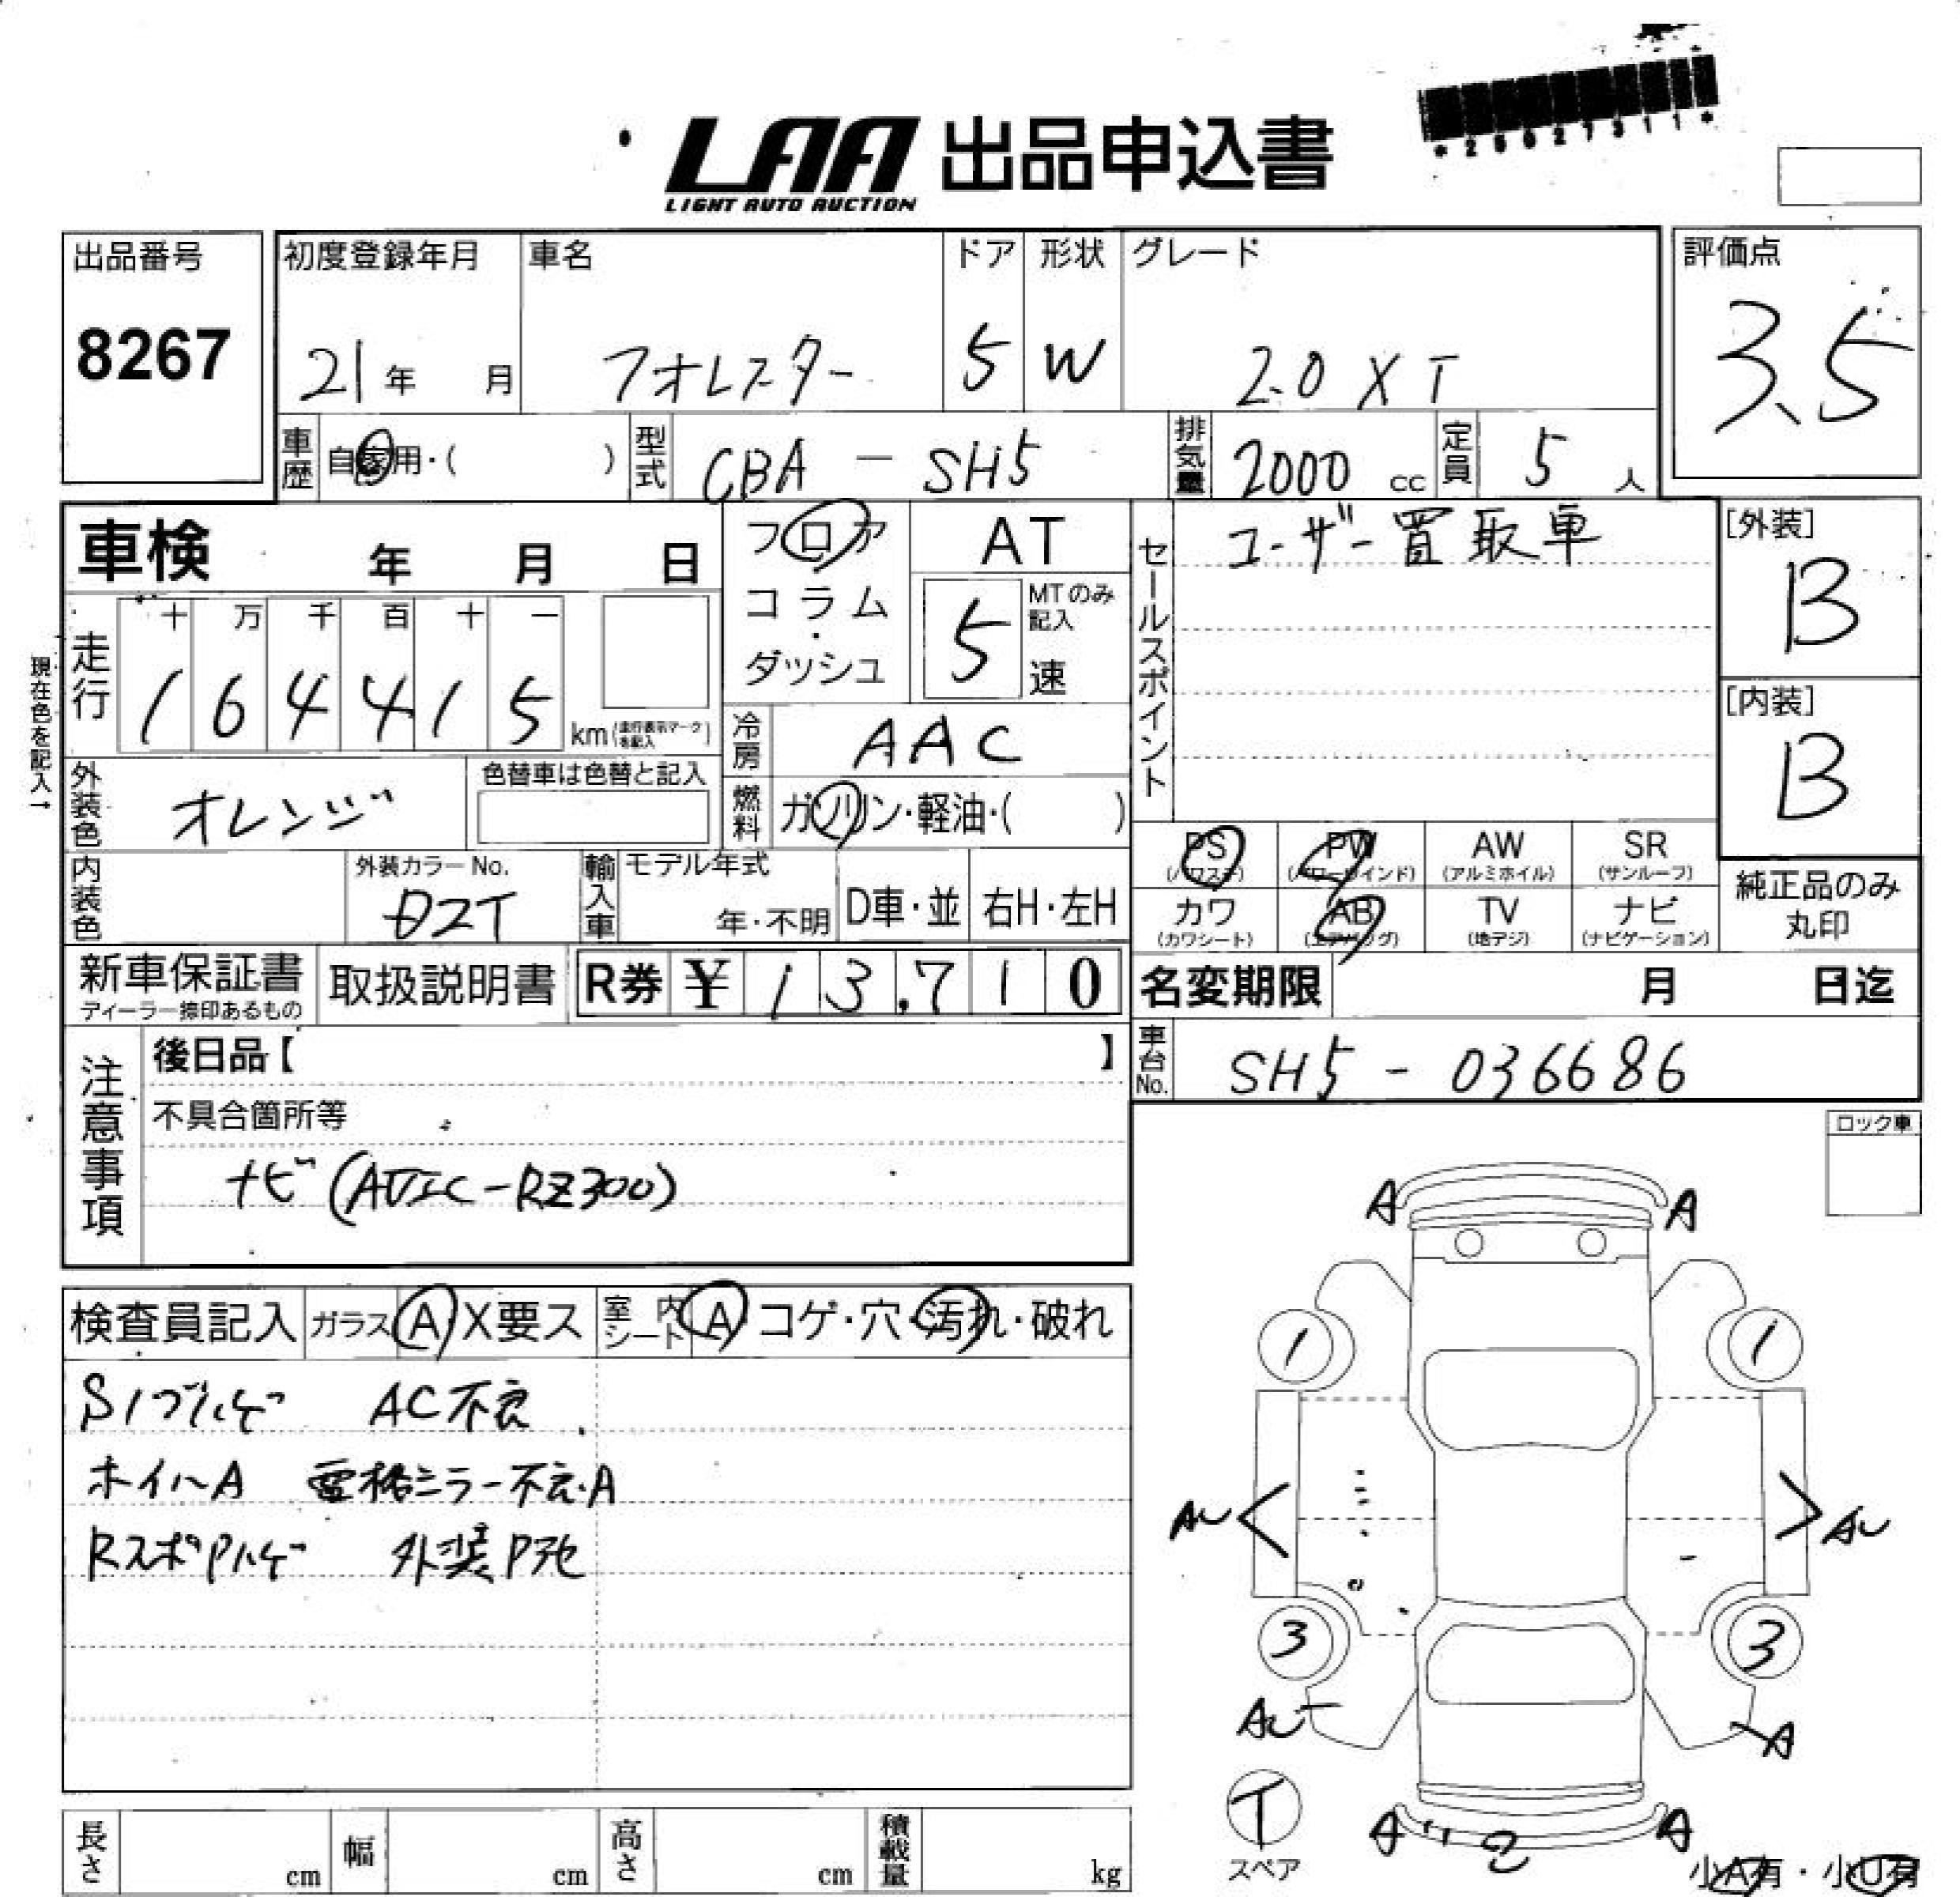 LAA 出品申込書
LIGHT AUTO AUCTION
出品番号
8267
初度登録年月
21年 月
車名
フォレスター
ドア
5
形状
W
グレード
2.0 XT
評価点
3.5
車歴 自家用・( )
型式 CBA - SH5
排気量 2000 cc
定員 5 人
車検 年 月 日
フロア
コラム
・
ダッシュ
AT
5
MTのみ
記入
速
セールスポイント
ユーザー買取車
[外装]
B
[内装]
B
走行
十 万 千 百 十 一
1 6 4 4 1 5
km (走行表示マークを記入)
現在色を記入→
冷房 AAC
外装色 オレンジ
色替車は色替と記入
燃料 ガソリン・軽油・( )
内装色
外装カラーNo.
D2T
輸入車
モデル年式
年・不明
D車・並
右H・左H
PS
(パワステ)
PW
(パワーウインド)
AW
(アルミホイル)
SR
(サンルーフ)
カワ
(カワシート)
AB
(エアバッグ)
TV
(地デジ)
ナビ
(ナビゲーション)
純正品のみ
丸印
新車保証書
ディーラー捺印あるもの
取扱説明書
R券 ¥ 13,710
名変期限 月 日迄
車台No. SH5 - 036686
注意事項
後日品【 】
不具合箇所等
ナビ (AVIC-RZ300)
ロック車
検査員記入 ガラス A X要ス 室内シート A コゲ・穴・汚れ・破れ
AC不良
ホイールA 電格ミラー不良・A
RスポPハゲ
A A
1 1
AU AU
3 3
AU A
T
スペア
A 2 A
小A有・小U有
長さ cm
幅 cm
高さ cm
積載量 kg